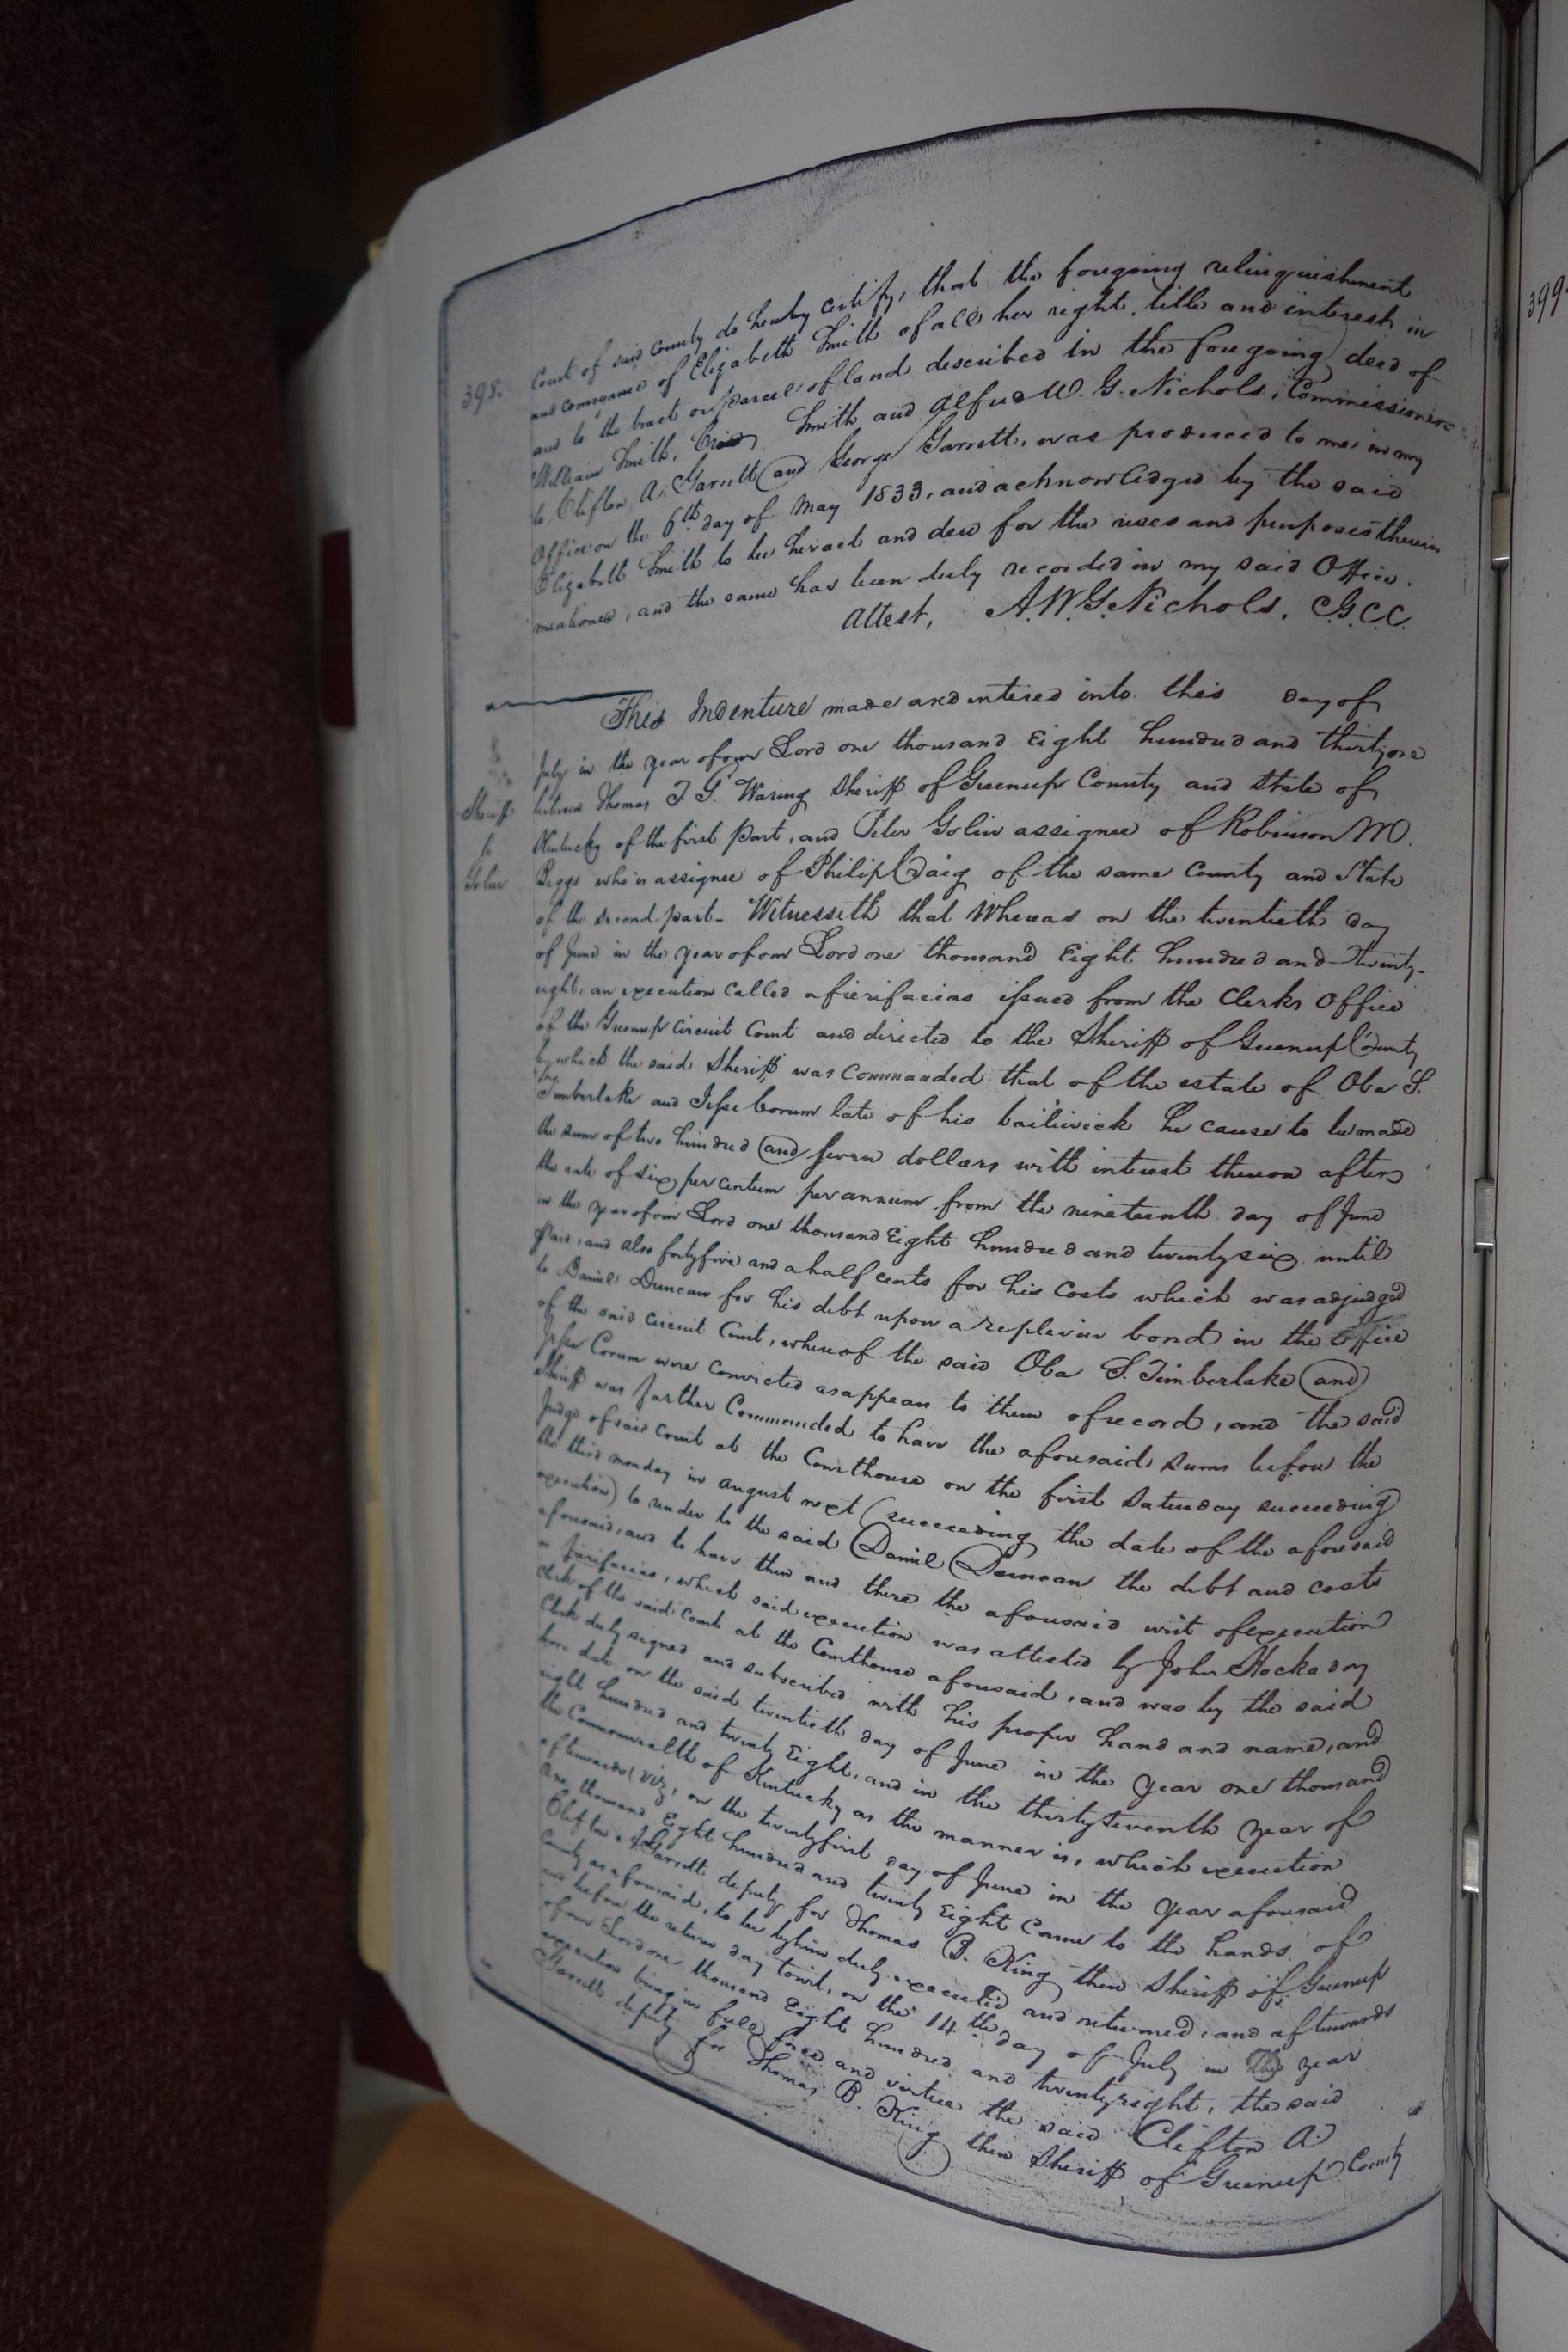 398.
Court of said County do hereby certify, that the foregoing relinquishment
and conveyance of Elizabeth Smith of all her right, title and interest in
and to the tract or parcel of land described in the foregoing deed of
William Smith, Smith and Alfred W. G. Nichols, Commissioners
to Clifton A. Garrett and George Garrett, was produced to me in my
Office on the 6th day of May 1833, and acknowledged by the said
Elizabeth Smith to be her act and deed for the uses and purposes therein
mentioned, and the same has been duly recorded in my said Office.
Attest, A.W.G. Nichols, C.G.C.C.
This Indenture made and entered into this day of
July in the year of our Lord one thousand Eight hundred and thirty one
between Thomas T. G. Waring Sheriff of Greenup County and State of
Kentucky of the first part, and Peter Golin assignee of Robinson M.
Biggs who is assignee of Philip Craig of the same County and State
of the second part - Witnesseth that Whereas on the twentieth day
of June in the year of our Lord one thousand Eight hundred and Twenty-
eight, an execution called a fierifacias issued from the Clerks Office
of the Greenup Circuit Court and directed to the Sheriff of Greenup County
by which the said Sheriff was Commanded that of the estate of Oba S.
Timberlake and Jesse Corum late of his bailiwick he cause to be made
the sum of two hundred and seven dollars with interest thereon after
the rate of six per centum per annum from the nineteenth day of June
in the year of our Lord one thousand Eight hundred and twenty six until
paid, and also forty five and a half cents for his Costs which was adjudged
to Daniel Duncan for his debt upon a replevin bond in the Office
of the said Circuit Court, whereof the said Oba S. Timberlake and
Jesse Corum were Convicted as appears to them of record, and the said
Sheriff was further Commanded to have the aforesaid sums before the
Judge of said Court at the Courthouse on the first Saturday succeeding
the third monday in august next (succeeding the date of the aforesaid
execution) to render to the said Daniel Duncan the debt and costs
aforesaid, and to have then and there the aforesaid writ of execution
or fierifacias, which said execution was attested by John Hockaday
Clerk of the said Court at the Courthouse aforesaid, and was by the said
Clerk duly signed and subscribed with his proper hand and name, and
bore date on the said twentieth day of June in the year one thousand
eight hundred and twenty Eight, and in the thirty seventh year of
the Commonwealth of Kentucky as the manner is, which execution
afterwards (viz, on the twentyfirst day of June in the year aforesaid
One thousand Eight hundred and twenty Eight came to the hands of
Clifton A. Garrett deputy for Thomas B. King then Sheriff of Greenup
County as aforesaid, to be by him duly executed and returned, and afterwards
and before the return day towit, on the 14th day of July in the year
of our Lord one thousand Eight hundred and twenty eight, the said
execution being in full force and virtue the said Clifton A.
Garrett deputy for Thomas B. King then Sheriff of Greenup County
Sheriff
to
Golin
399.